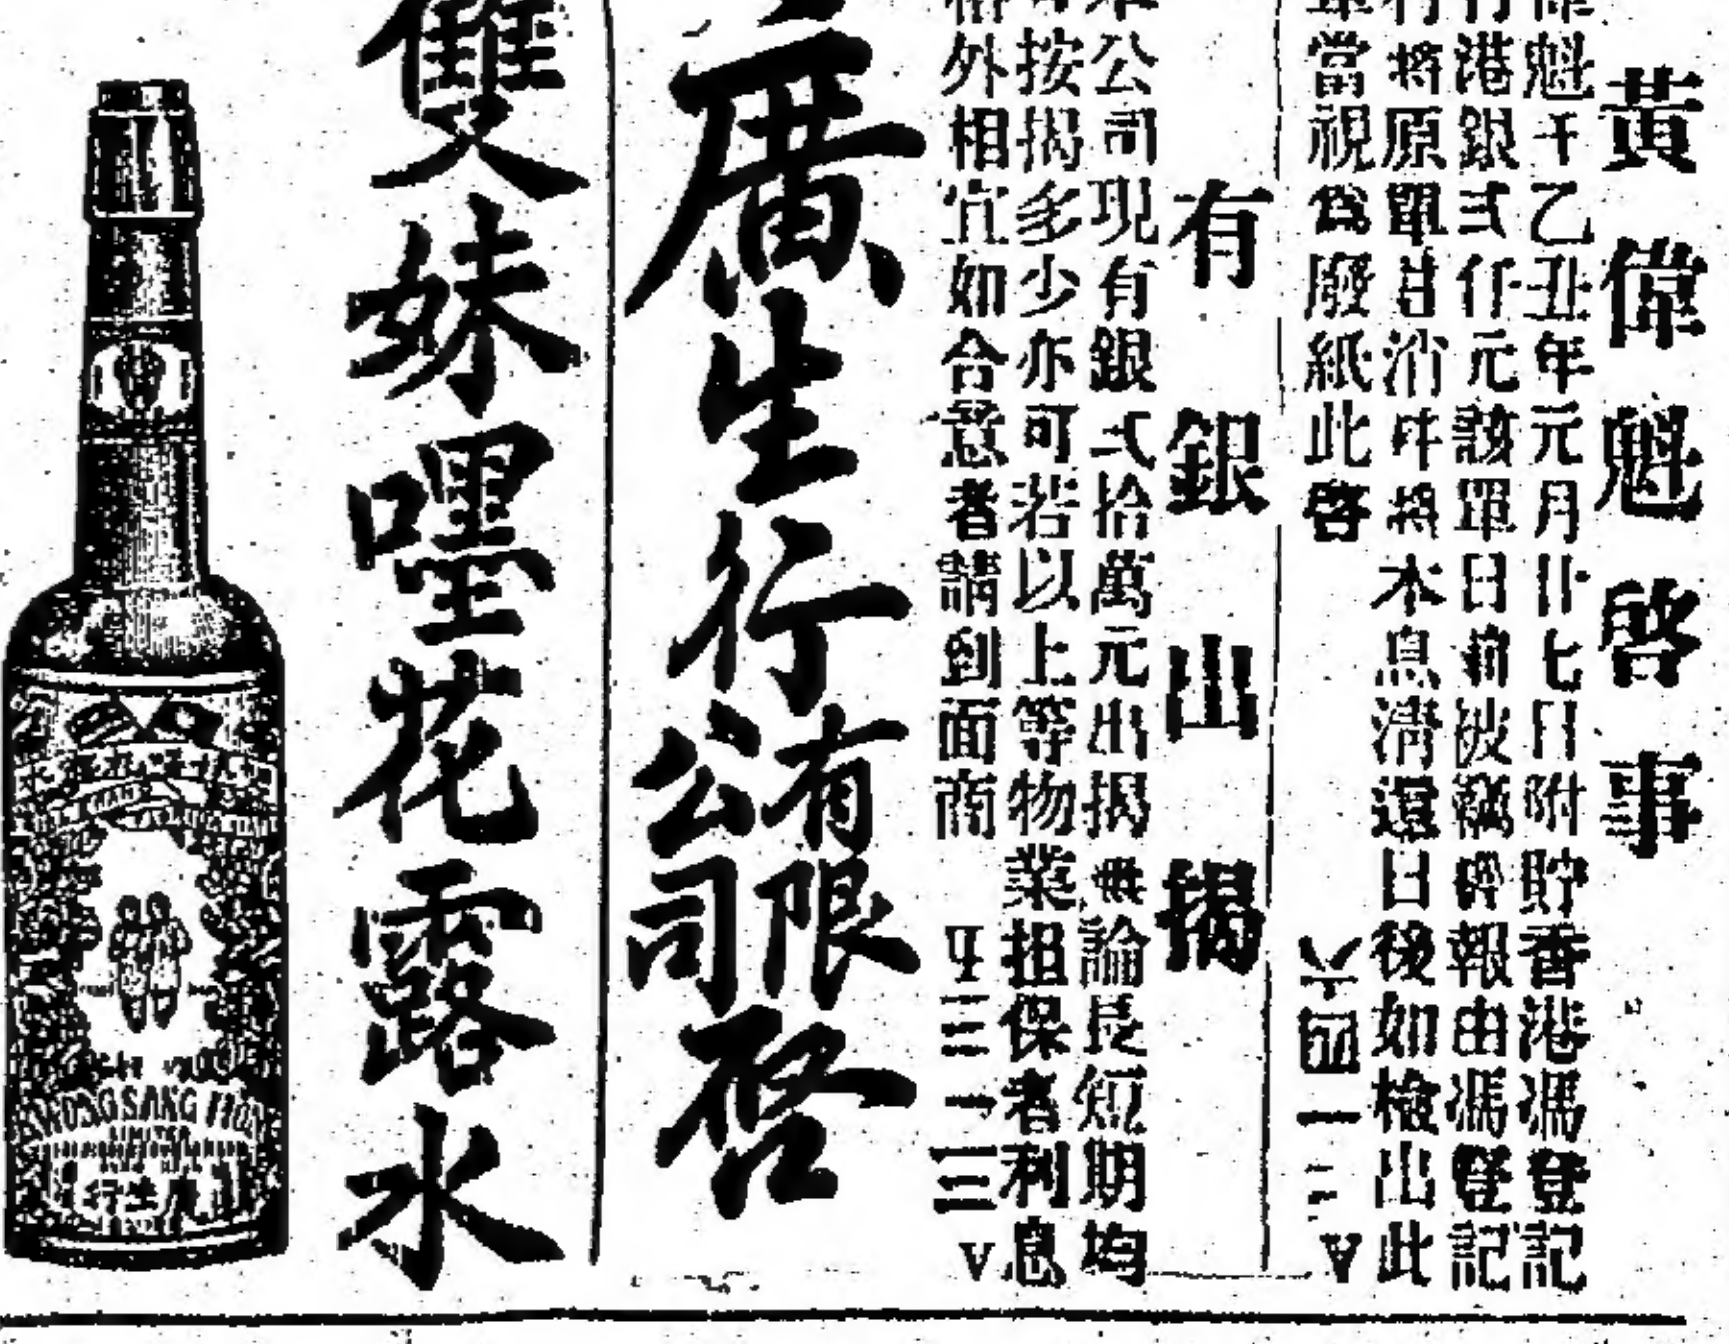 黃偉魁啓事
偉魁于乙丑年元月廿七日附貯香港馮登記
行港銀弍仟元該單日前被竊經報由馮登記
行將原單註消昨將本息清還日後如檢出此
單當視為廢紙此啓
六四一二 V
有銀出揭
本公司現有銀弍拾萬元出揭無論長短期均
可按揭多少亦可若以上等物業担保者利息
格外相宜如合意者請到面商
三一三 V
廣生行有限公司啓
雙妹嚜花露水
KWONG SANG HONG
LIMITED
廣生行